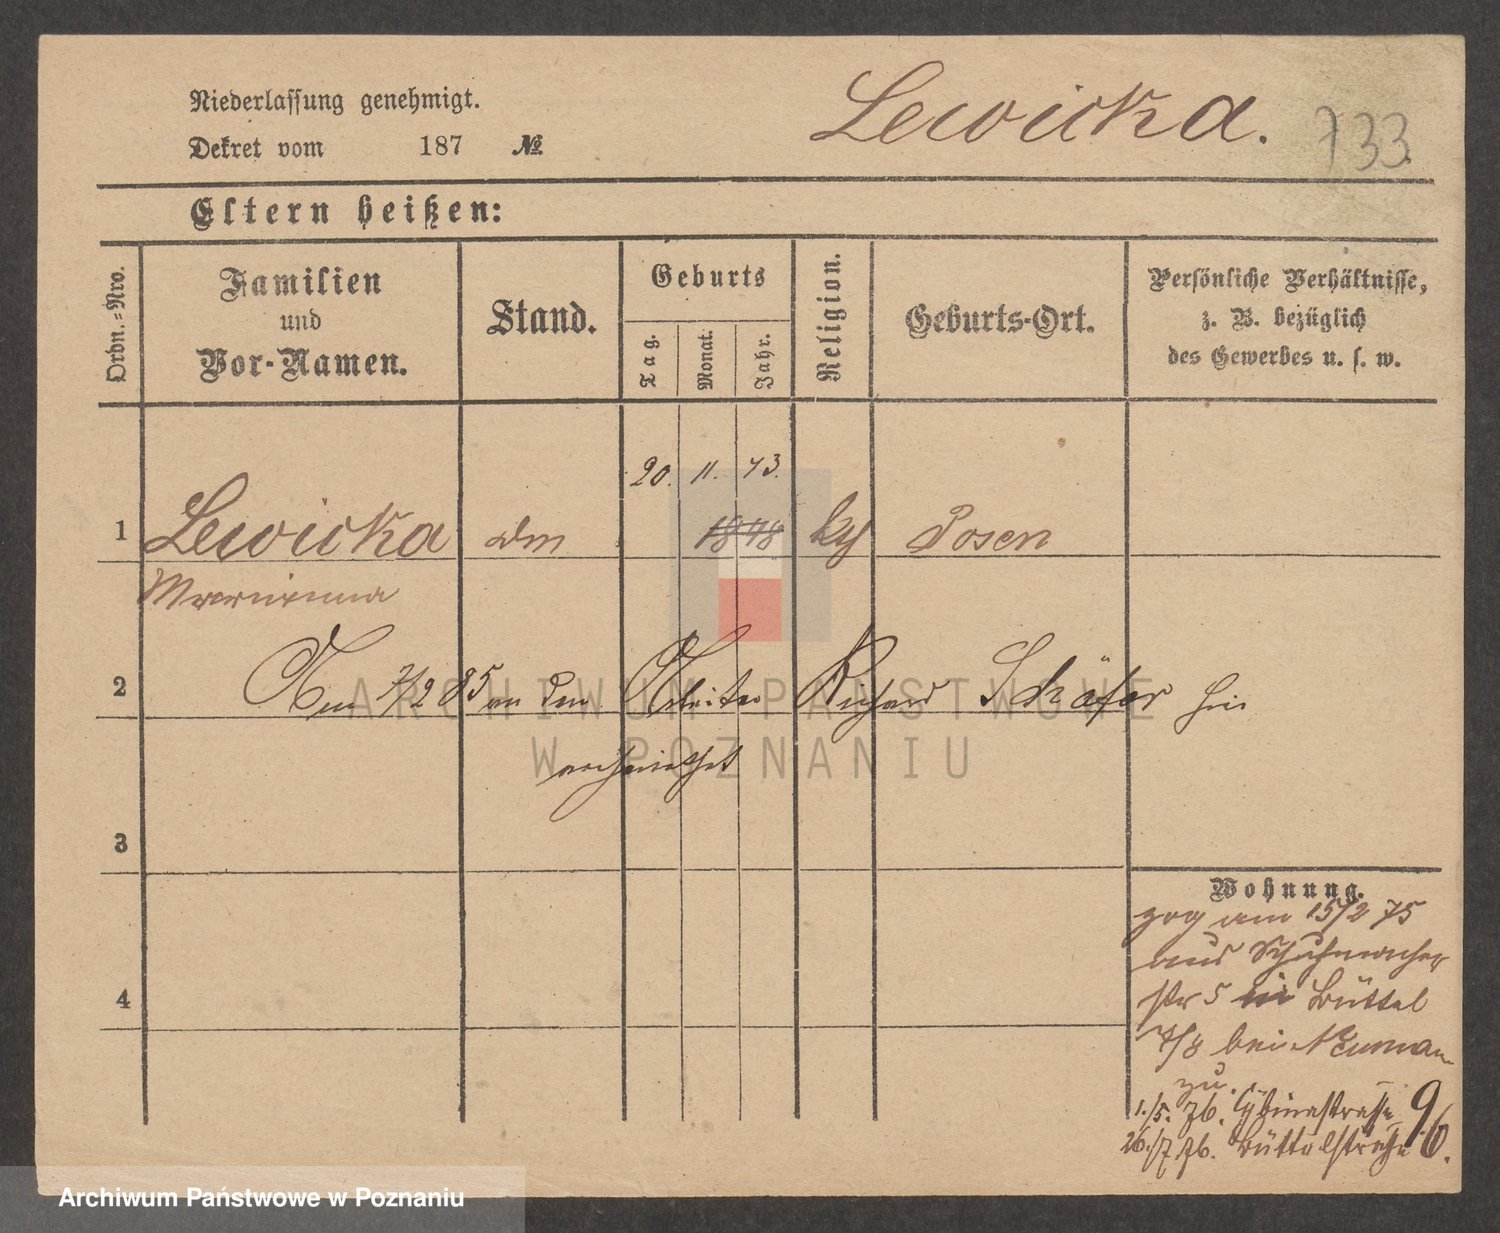 Niederlassung genehmigt.
Dekret vom 187 №
Lewicka.
733
Eltern heißen:
Ordn.-Nro.
Familien
und
Vor-Namen.
Stand.
Geburts
Tag.
Monat.
Jahr.
Religion.
Geburts-Ort.
Persönliche Verhältnisse,
z. B. bezüglich
des Gewerbes u. s. w.
20. 11. 43.
1 Lewicka 1848 Posen
Marianna
2 Am 7/2 85 an den Arbeiter Richard Schäfer hier
verheirathet
3
4
Wohnung.
zog am 15/2 75
aus Schuhmacher
str 5 in Büttel
7/8 bei Neuman
zu.
1./5. 76. Cybinastrasse 9
26./7. 76. Büttelstraße 6.
ARCHIWUM PAŃSTWOWE
W POZNANIU
Archiwum Państwowe w Poznaniu